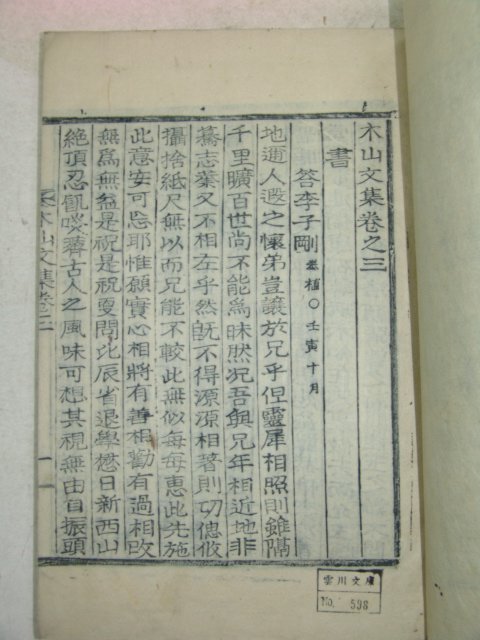 木山文集卷之三
書
答李子剛 基植○壬寅十月
地邇人遐之懷弟豈讓於兄乎但靈犀相照則雖隔
千里曠百世尚不能爲昧然况吾與兄年相近地非
驀志業又不相左乎然旣不得源源相著則切偲攸
攝捨紙尺無以而兄能不較此無似每每惠此先施
此意安可忘耶惟願實心相將有善相勸有過相改
無爲無益是祝是祝更問比辰省退學懋日新西山
絶頂忍飢啖薺古人之風味可想其視無由自振頭
木山文集卷三 一
雲川文庫
No. 598